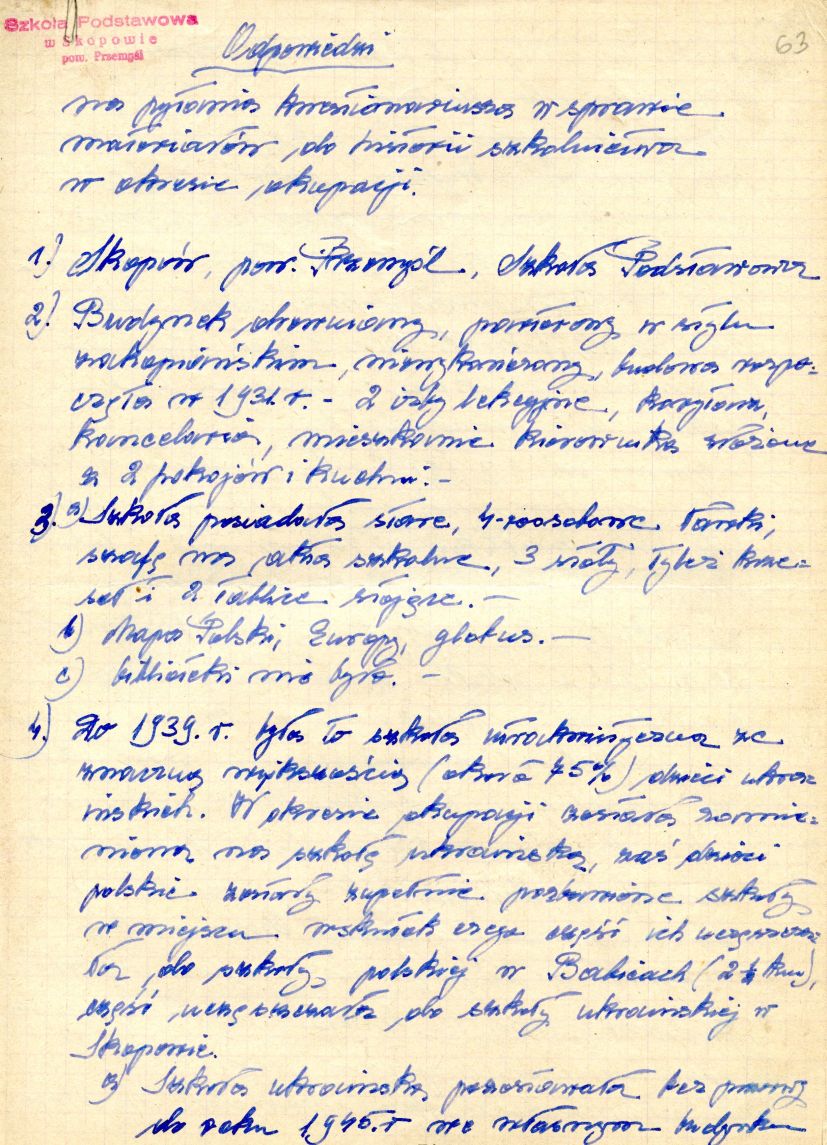 Szkoła Podstawowa
w Skopowie
pow. Przemyśl
63
Odpowiedzi
na pytania kwestionariusza w sprawie
materiałów do historii szkolnictwa
w okresie okupacji.
1.) Skopów, pow. Przemyśl, Szkoła Podstawowa
2.) Budynek drewniany, parterowy, w stylu
zakopiańskim, niewykończony, budowa rozpo=
częta w 1931. r. - 2 izby lekcyjne, korytarz,
kancelaria, mieszkanie kierownika złożone
z 2 pokojów i kuchni. -
3.) a) Szkoła posiadała stare, 4-roosobowe ławki,
szafę na akta szkolne, 3 stoły, tyleż krze=
seł i 2 tablice stojące. -
b) Mapa Polski, Europy, globus. -
c) biblioteki nie było. -
4.) Do 1939. r. była to szkoła utrakwistyczna ze
znaczną większością (około 75%) dzieci ukra=
ińskich. W okresie okupacji została zamie=
niona na szkołę ukraińską, zaś dzieci
polskie zostały zupełnie pozbawione szkoły
w miejscu wskutek czego część ich uczęszcza=
ła do szkoły polskiej w Babicach (2 ½ km),
część uczęszczała do szkoły ukraińskiej w
Skopowie.
a) Szkoła ukraińska pozostawała bez przerwy
do roku 1945. r we własnym budynku